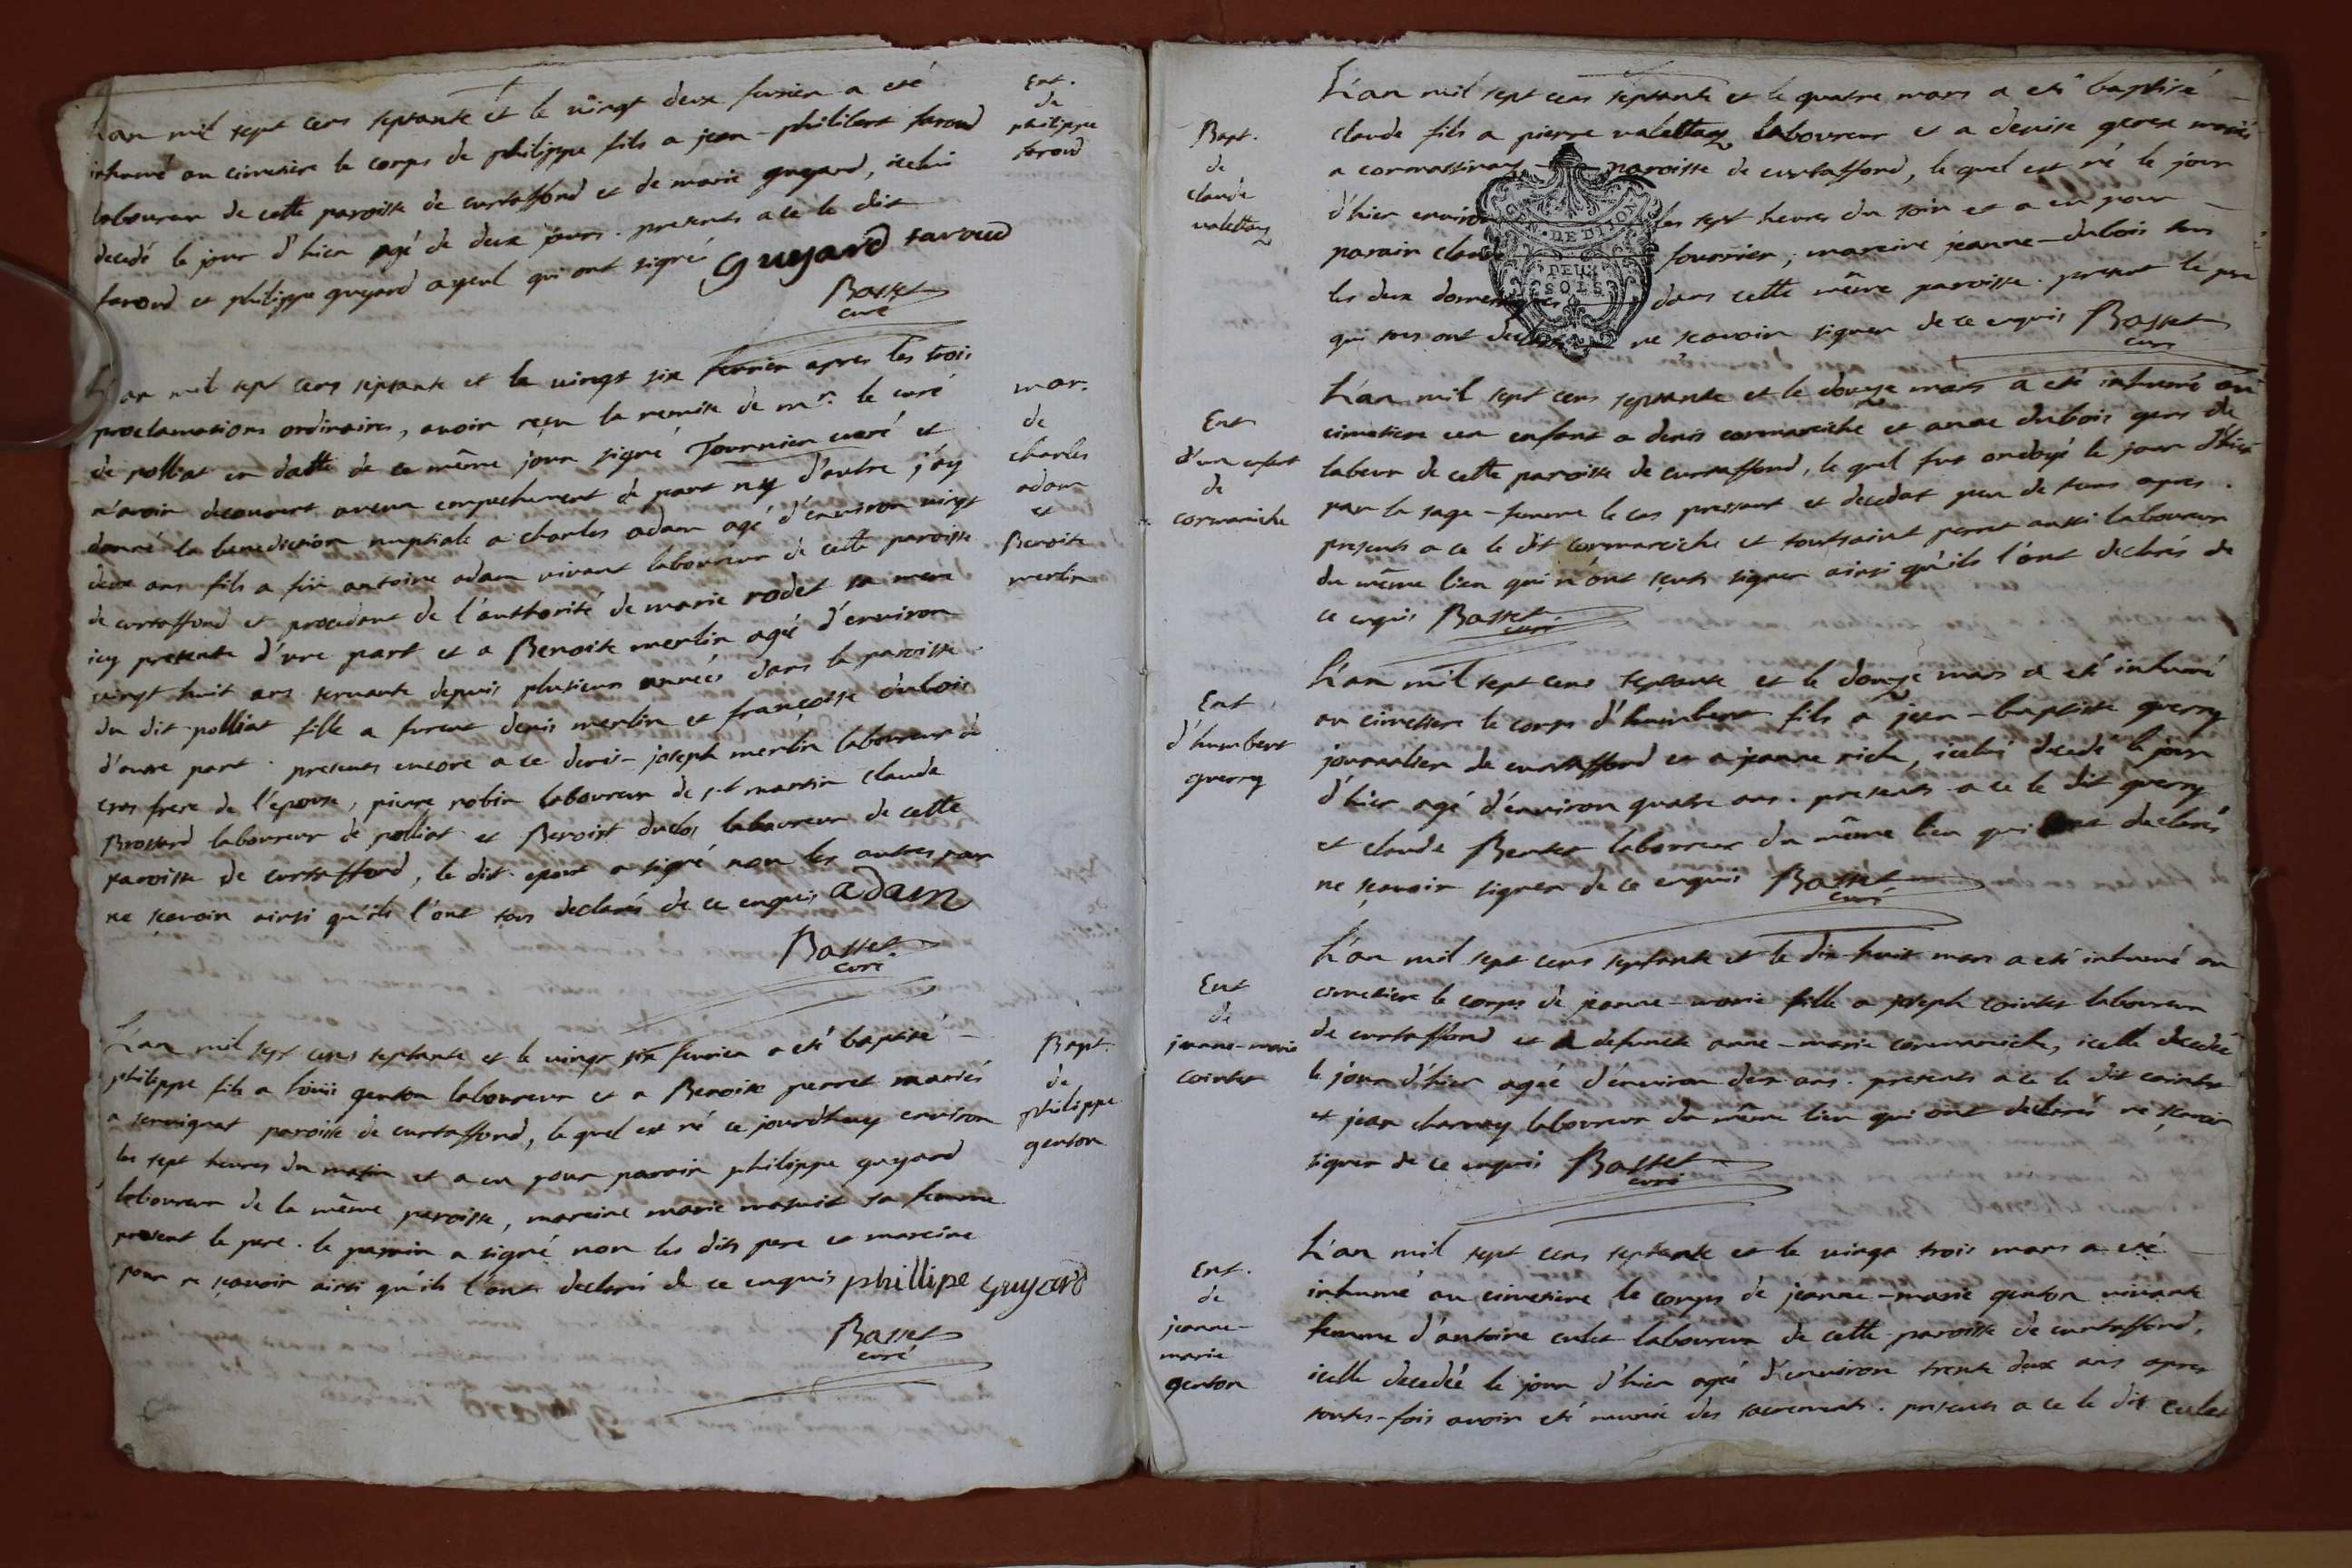 L'an mil sept cens septante et le vingt deux fevrier a eté
inhumé au cimetiere le corps de philippe fils a jean-philibert faroud
laboureur de cette paroisse de curtaffond et de marie guyard, icelui
decedé le jour d'hier agé de deux jours. presents a ce le dit
faroud et philippe guyard ayeul qui ont signé guyard faroud
Basset
curé
Ent.
de
philippe
faroud
L'an mil sept cens septante et le vingt six fevrier apres les trois
proclamations ordinaires, avoir reçu la remise de mr. le curé
de polliat en datte de ce même jour signé Tournier curé et
n'avoir decouvert aucun empechement de part ny d'autre j'ay
donné la benediction nuptiale a charles adam agé d'environ vingt
deux ans fils a fû antoine adam vivant laboureur de cette paroisse
de curtaffond et procedant de l'authorité de marie rodet sa mere
icy presente d'une part et a Benoite merlin agée d'environ
vingt huit ans servante depuis plusieurs années dans la paroisse
du dit polliat fille a furent denis merlin et françoise dubois
d'autre part. presents encore a ce denis-joseph merlin laboureur de
cras frere de l'epouse, pierre robin laboureur de st martin claude
Brossard laboureur de polliat et Benoist duclos laboureur de cette
paroisse de curtaffond, le dit epoux a signé non les autres pour
ne sçavoir ainsi qu'ils l'ont tous declarés de ce enquis adam
Basset
curé
mar.
de
charles
adam
et
Benoite
merlin
L'an mil sept cens septante et le vingt six fevrier a eté baptisé
philippe fils a loüis genton laboureur et a Benoite perret mariés
a servignat paroisse de curtaffond, le quel est né ce jourdhuy environ
les sept heures du matin et a eu pour parain philippe guyard
laboureur de la même paroisse, mareine marie mafuit sa femme
present le pere. le parain a signé non les dits pere et mareine
pour ne sçavoir ainsi qu'ils l'ont declaré de ce enquis phillipe guyard
Basset
curé
Bapt.
de
philippe
genton
L'an mil sept cens septante et le quatre mars a eté baptisé
claude fils a pierre valettaz laboureur et a denise gerex mariés
a cormassinaz paroisse de curtaffond, le quel est né le jour
d'hier environ les sept heures du soir et a eu pour
parain claude fournier, mareine jeanne-dubois tous
les deux domestiques dans cette même paroisse. present le pere
qui tous ont declarés ne sçavoir signer de ce enquis Basset
curé
GEN. DE DIJON
DEUX
SOLS
Bapt.
de
claude
valettaz
L'an mil sept cens septante et le douze mars a eté inhumé au
cimetiere un enfant a denis cormareiche et anne dubois gens de
labeur de cette paroisse de curtaffond, le quel fut ondoyé le jour d'hier
par la sage-femme le cas pressant et decedat peu de tems apres.
presents a ce le dit cormareiche et toussaint perret aussi laboureur
du même lieu qui n'ont sçeuts signer ainsi qu'ils l'ont declarés de
ce enquis Basset
curé
Ent
d'un enfant
de
cormareiche
L'an mil sept cens septante et le douze mars a eté inhumé
au cimetiere le corps d'humbert fils a jean-baptiste guerry
journalier de curtaffond et a jeanne riche, icelui decedé le jour
d'hier agé d'environ quatre ans. presents a ce le dit guerry
et claude Bentet laboureur du même lieu qui ont declarés
ne sçavoir signer de ce enquis Basset
curé
Ent
d'humbert
guerry
L'an mil sept cens septante et le dix-huit mars a eté inhumé au
cimetiere le corps de jeanne-marie fille a joseph cointet laboureur
de curtaffond et a defuncte anne-marie cormareiche, icelle decedée
le jour d'hier agée d'environ deux ans. presents a ce le dit cointet
et jean charnay laboureur du même lieu qui ont declarés ne sçavoir
signer de ce enquis Basset
curé
Ent
de
jeanne-marie
cointet
L'an mil sept cens septante et le vingt trois mars a eté
inhumé au cimetiere le corps de jeanne-marie genton vivante
femme d'antoine culet laboureur de cette paroisse de curtaffond,
icelle decedée le jour d'hier agée d'environ trente deux ans apres
toutes-fois avoir eté munie des sacrements. presents a ce le dit culet
Ent.
de
jeanne-
marie
genton